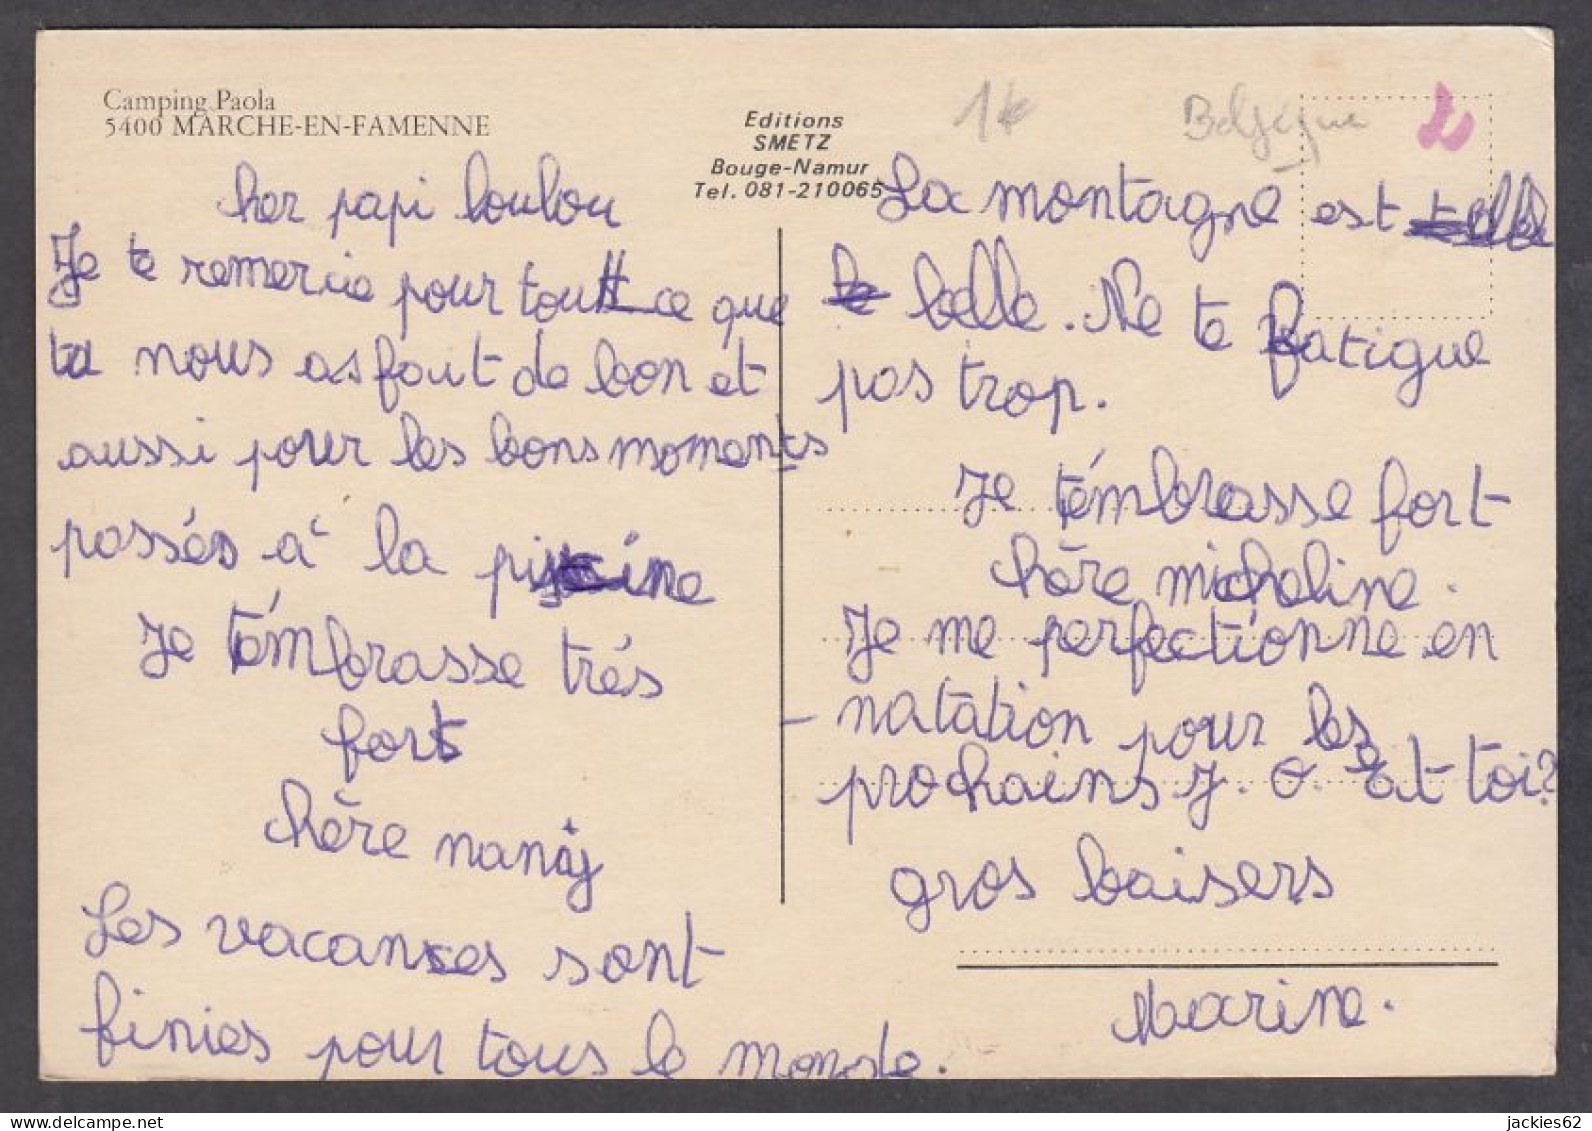 Camping Paola
5400 MARCHE-EN-FAMENNE
Editions
SMETZ
Bouge-Namur
Tel. 081-210065
1€
Belgique
cher papi loulou
Je te remercie pour tout ce que
tu nous as fait de bon et
aussi pour les bons moments
passés à la piscine
Je t'émbrasse trés
fort
chère nanij
Les vacances sont
finies pour tous le monde.
La montagne est
belle. Ne te fatigue
pas trop.
Je t'émbrasse fort
chère micheline.
Je me perfectionne en
natation pour les
prochains J. O. Et-toi?
gros baisers
Marine.
jackies62